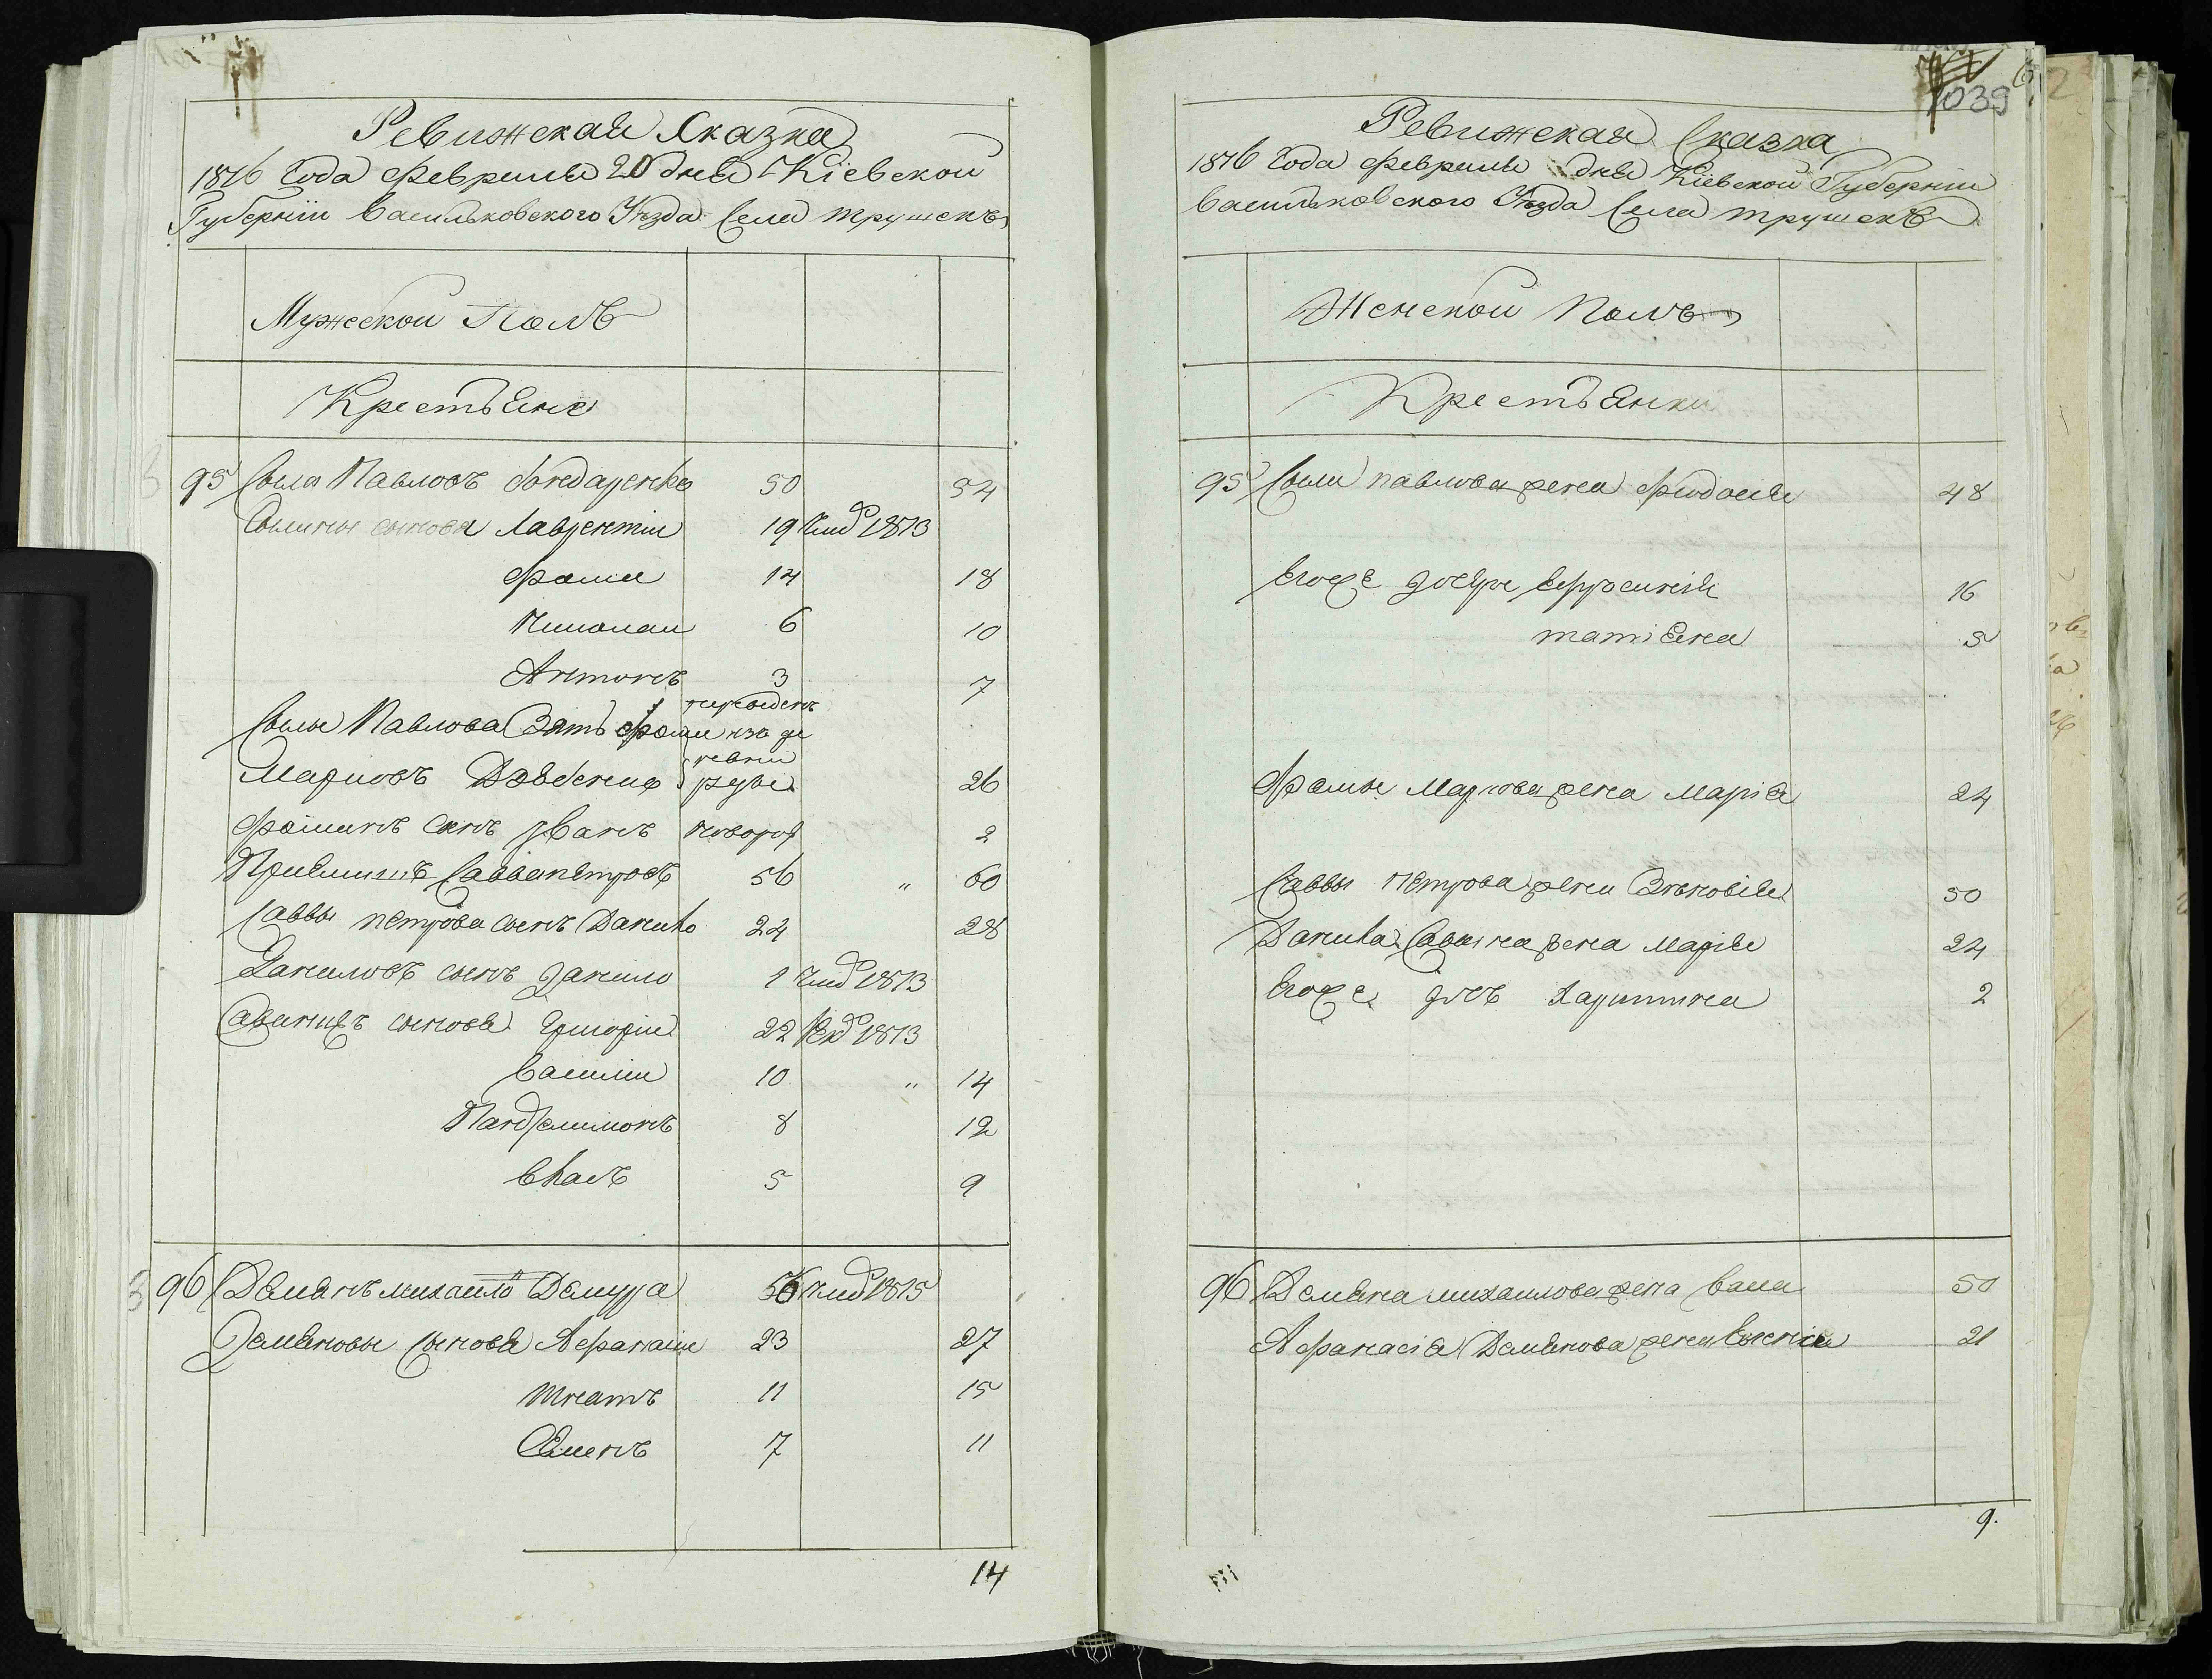 Ревижская Сказка
1816 Года Февраля 20 дня Кіевской
Губерніи Васильковского Уѣзда Села Трушекъ
Мужеской Полъ
Крестьяне
95 Сыла Павловъ бондаренко 50 54
Сылины сынова Лаврентіи 19 1813
Фома 14 18
Николаи 6 10
Антонъ 3 7
переведенъ
Сылы Павлова Зять Фома изъ де
ревни
Марковъ руды 26
Фоминъ сынъ Иванъ новорож 2
Приймишъ Савва петровъ 56 " 60
Саввы петрова сынъ Данило 24 28
Даниловъ сынъ Данило 1 1813
Савинихъ синовя Григоріи 22 1813
Василіи 10 " 14
Пантелимонъ 8 12
Влась 5 9
96 Демянъ михаило Демура 56 1815
Демяновы сыновя Афанасіи 23 27
Игнатъ 11 15
Семенъ 7 11
14
1039
Ревижская Сказка
1816 Года Февраля дня Кіевской Губерніи
Васильковского Уѣзда Села трушекъ
Женской Полъ
Крестьянки
95 Сылы павлова жена Феодосія 48
Егоже дочери Ефросинія 16
татіяна 5
Фомы Маркова жена Марія 24
Саввы петрова жена Зѣновія 50
Данила Савина жена Марія 24
Егоже дочь Харитина 2
96 Демяна михаилова жена 50
Афанасія Демянова жена Евгенія 21
9.